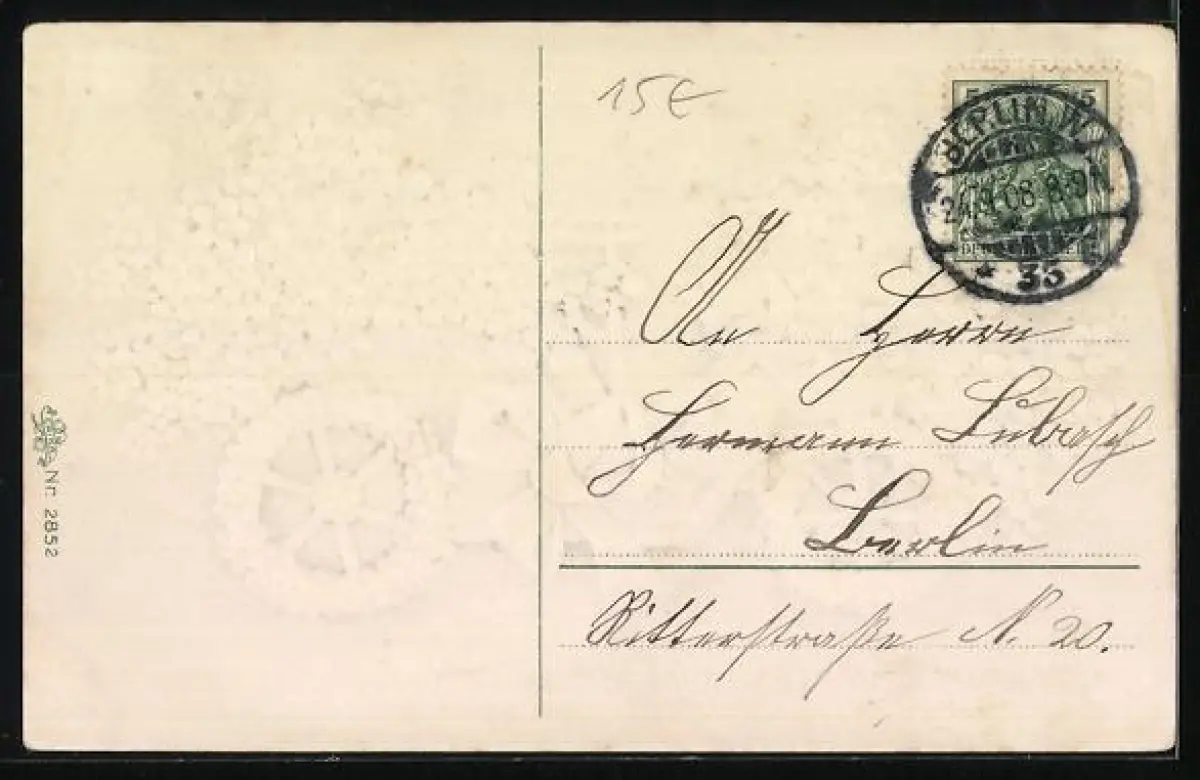 15€
5 5
BERLIN W.
24.4.08 8-9
* 35
An Herrn
Hermann Lubasch
Berlin
Ritterstraße N. 20.
Nr. 2852